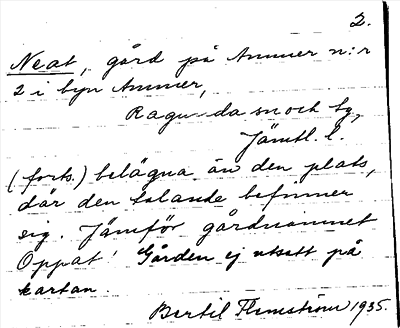 2.
Neat, gård på Ammer n:r
2 i byn Ammer,
Ragunda sn och tg,
Jämtl. l.
(forts.) belägna än den plats,
där den talande befinner
sig. Jämför gårdnamnet
Oppat! Gården ej utsatt på
kartan.
Bertil Flemström 1935.